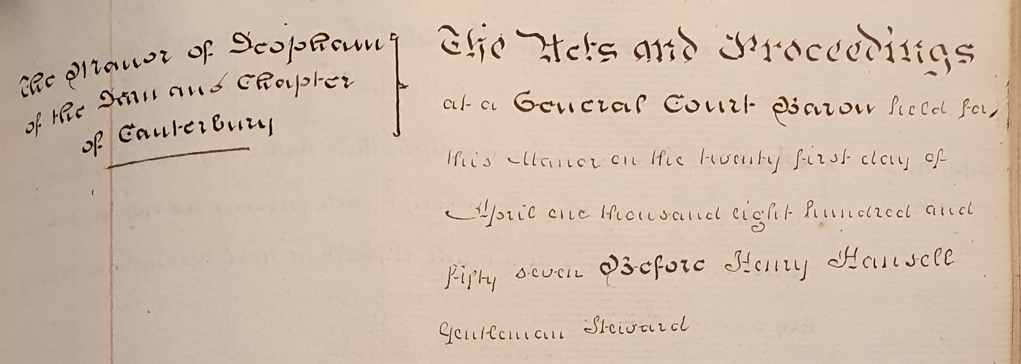 The Manor of Deopham
of the Dean and Chapter
of Canterbury
The Acts and Proceedings
at a General Court Baron held for
this Manor on the twenty first day of
April one thousand eight hundred and
fifty seven Before Henry Hansell
Gentleman Steward